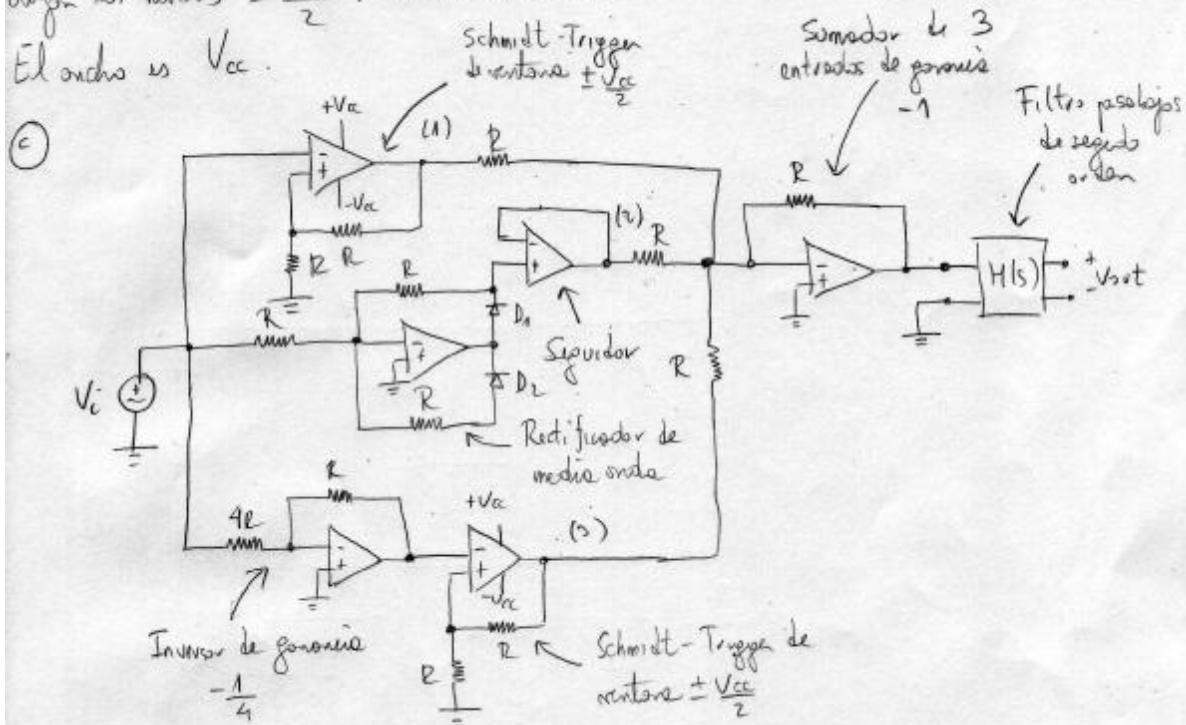 los ± Vcc/2
El ancho es Vcc.
(c)
Schmidt-Trigger
de ventana ± Vcc/2
Sumador de 3
entradas de ganancia
-1
Filtro pasabajos
de segundo
orden
+Vcc
(1)
R
-
+
-Vcc
R
R
(2)
R
R
-
+
H(s)
+
Vout
-
-
+
R
D1
R
-
+
Seguidor
R
Vi
D2
R
Rectificador de
media onda
R
4R
+Vcc
(3)
-
+
-
+
-Vcc
R
R
Inversor de ganancia
-1/4
Schmidt-Trigger de
ventana ± Vcc/2